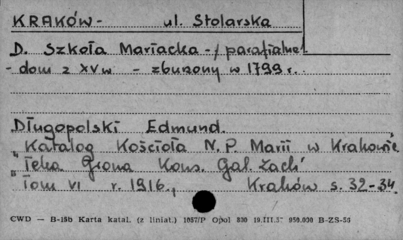 KRAKÓW - ul. Stolarska
D. Szkoła Mariacka -/ parafialne/
- dom z XV w - zburzony w 1799 r.
Długopolski Edmund.
"Katalog Kościoła N.P. Marii w Krakowie
"Teka Grona Kons. Gal. Zach"
Tom VI r. 1916., Kraków s. 32-34.
CWD — B-15b Karta katal. (z liniat.) Opol 830 19.III.5 950.000 B-ZS-56